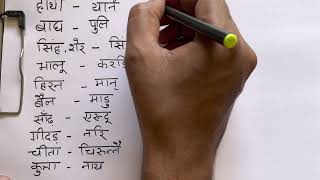 हाथी - यानै
बाघ - पुलि
सिंह, शेर - सिं
भालू - करडि
हिरन - मान्
बैल - माडु
साँढ - एरूदू
गीदड़ - नरि
चीता - चिरुत्तै
कुत्ता - नाय